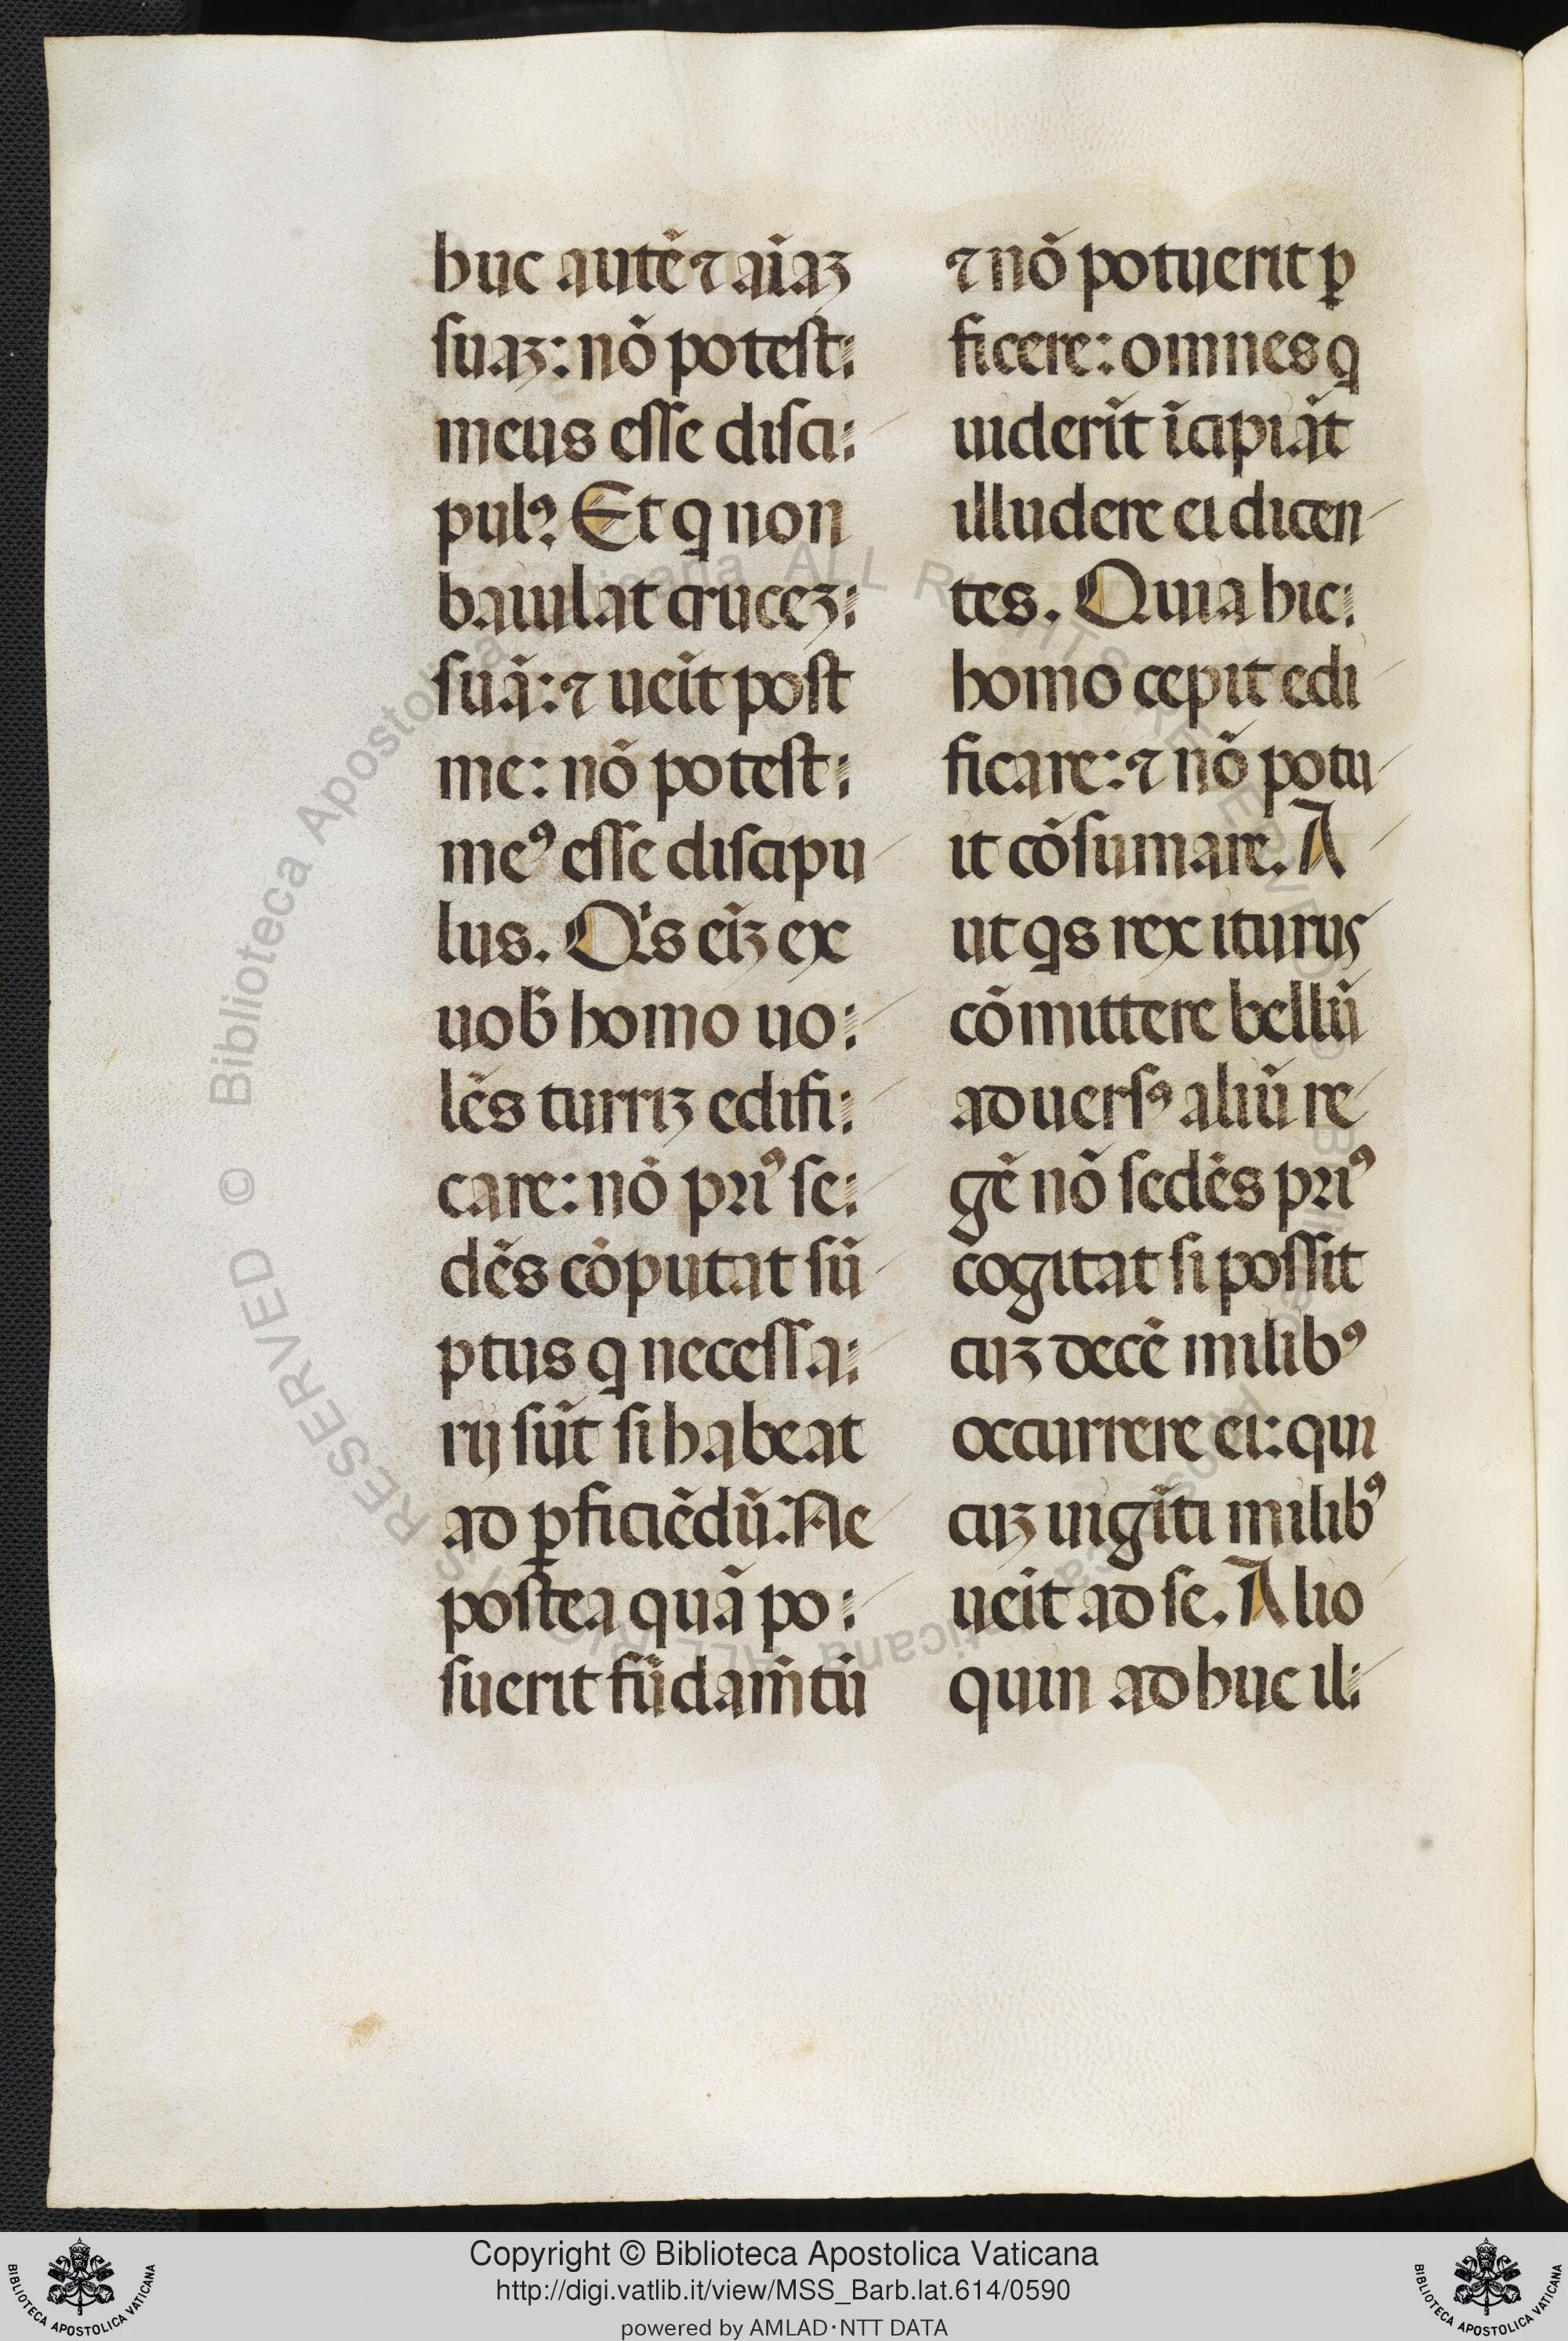 huc autē ⁊ aīaꝫ
suaꝫ: nō potest:
meus esse disci:
pulꝰ. Et q non
baiulat cruceꝫ:
suā: ⁊ ueit post
me: nō potest:
meꝰ esse discipu
lus. Qͥs eiꝫ ex
uob̄ homo uo:
lēs turriꝫ edifi:
care: nō priꝰ se:
dēs cōputat sū
ptus q necessa:
rij sūt si habeat
ad ꝑficiēdū: Ne
postea quā po:
suerit fūdam̄tū
⁊ nō potuerit ꝑ
ficere: omnes q
uiderīt īcipiāt
illudere ei dicen
tes. Quia hic:
homo cepit edi
ficare: ⁊ nō potu
it cōsumare. A
ut qs rex iturus
cōmittere bellū
aduersꝰ aliū re
gē nō sedēs priꝰ
cogitat si possit
cuꝫ decē milibꝰ
occurrere ei: qui
cuꝫ uigīti milibꝰ
ueit ad se. Alio
quin adhuc il:
© Biblioteca Apostolica Vaticana ALL RIGHTS RESERVED © Biblioteca Apostolica Vaticana ALL RIGHTS RESERVED
Copyright © Biblioteca Apostolica Vaticana
http://digi.vatlib.it/view/MSS_Barb.lat.614/0590
powered by AMLAD·NTT DATA
BIBLIOTECA APOSTOLICA VATICANA
BIBLIOTECA APOSTOLICA VATICANA